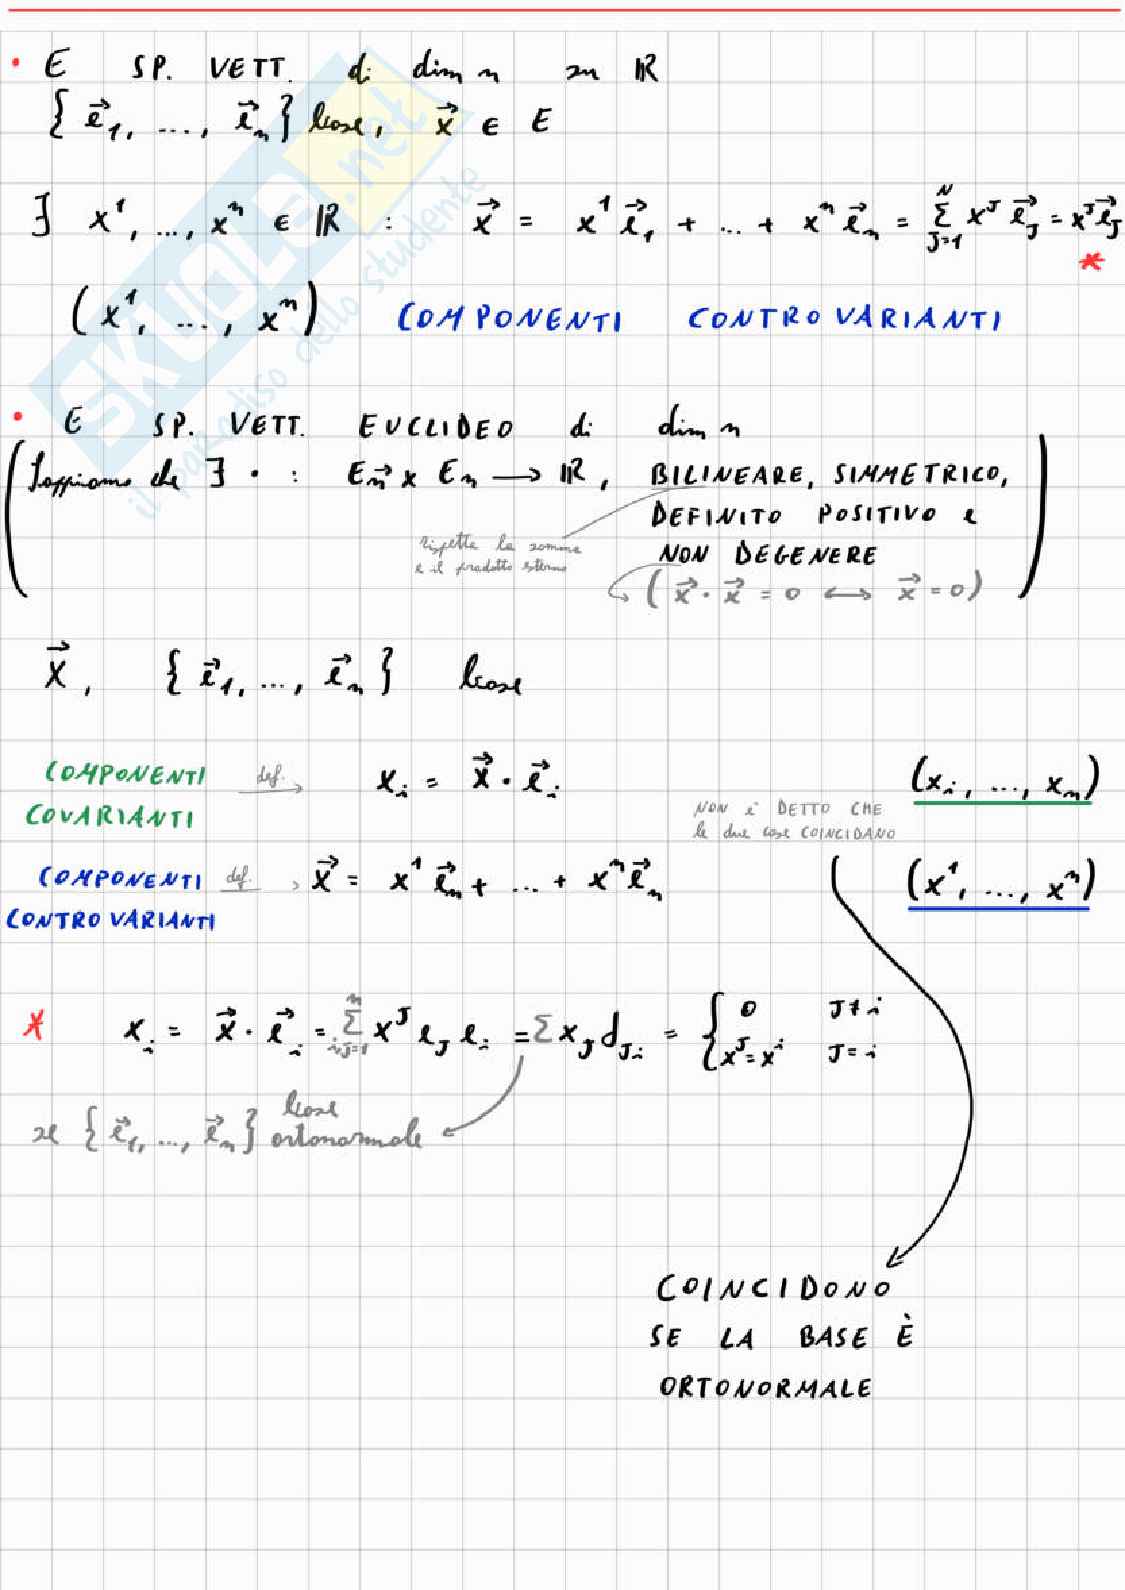 • E SP. VETT. di dim n su ℝ
{e⃗₁, ..., e⃗ₙ} base, x⃗ ∈ E
∃ x¹, ..., xⁿ ∈ ℝ : x⃗ = x¹ e⃗₁ + ... + xⁿ e⃗ₙ = Σ_{J=1}^{N} x^J e⃗_J = x^J e⃗_J
*
(x¹, ..., xⁿ) COMPONENTI CONTROVARIANTI
• E SP. VETT. EUCLIDEO di dim n
(Sappiamo che ∃ • : E⃗ₙ x Eₙ → ℝ, BILINEARE, SIMMETRICO,
DEFINITO POSITIVO e
rispetta la somma
e il prodotto esterno
NON DEGENERE
(x⃗ · x⃗ = 0 ↔ x⃗ = 0))
x⃗, {e⃗₁, ..., e⃗ₙ} base
COMPONENTI COVARIANTI def. → xᵢ = x⃗ · e⃗ᵢ (xᵢ, ..., xₙ)
NON è DETTO CHE
le due cose COINCIDANO
COMPONENTI CONTROVARIANTI def. → x⃗ = x¹ e⃗ₙ + ... + xⁿ e⃗ₙ (x¹, ..., xⁿ)
* xᵢ = x⃗ · e⃗ᵢ = Σ_{i,J=1}^{n} x^J e_J eᵢ = Σ x_J d_{Ji} = { 0 J ≠ i
x^J = xⁱ J = i
se {e⃗₁, ..., e⃗ₙ} base ortonormale
COINCIDONO
SE LA BASE È
ORTONORMALE
SKUOLA.net
il paradiso dello studente